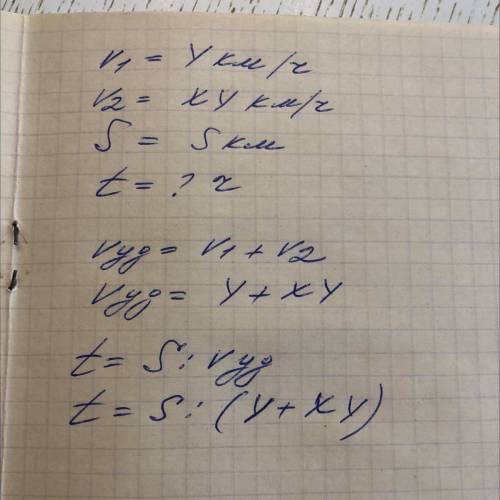 V1 = Y км/ч
V2 = XY км/ч
S = S км
t = ? ч
Vуд = V1 + V2
Vуд = Y + XY
t = S : Vуд
t = S : (Y + XY)